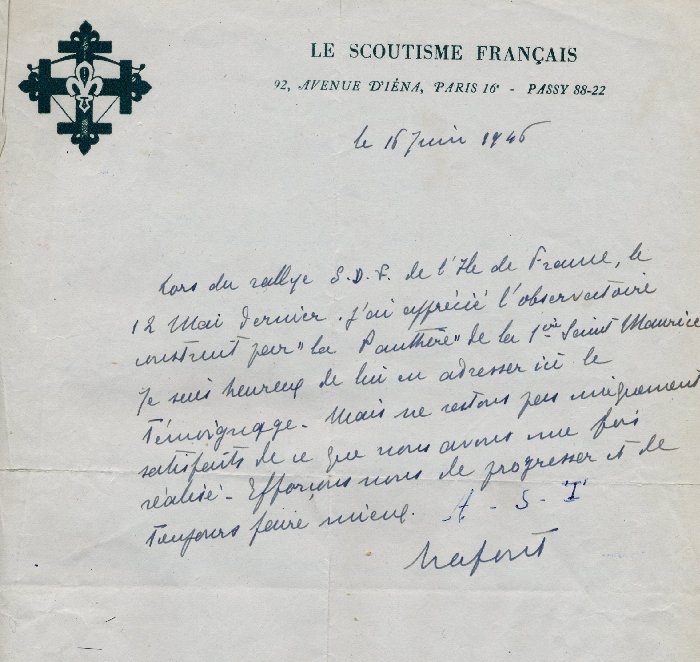 LE SCOUTISME FRANÇAIS
92, AVENUE D'IÉNA, PARIS 16e - PASSY 88-22
le 16 Juin 1946
Lors du rallye S.D.F. de l'Ile de France, le
12 Mai dernier. J'ai apprécié l'observatoire
construit par "la Panthère" de la 1ère Saint Maurice
Je suis heureux de lui en adresser ici le
témoignage - Mais ne restons pas uniquement
satisfaits de ce que nous avons une fois
réalisé - Efforçons nous de progresser et de
toujours faire mieux. A - S - I